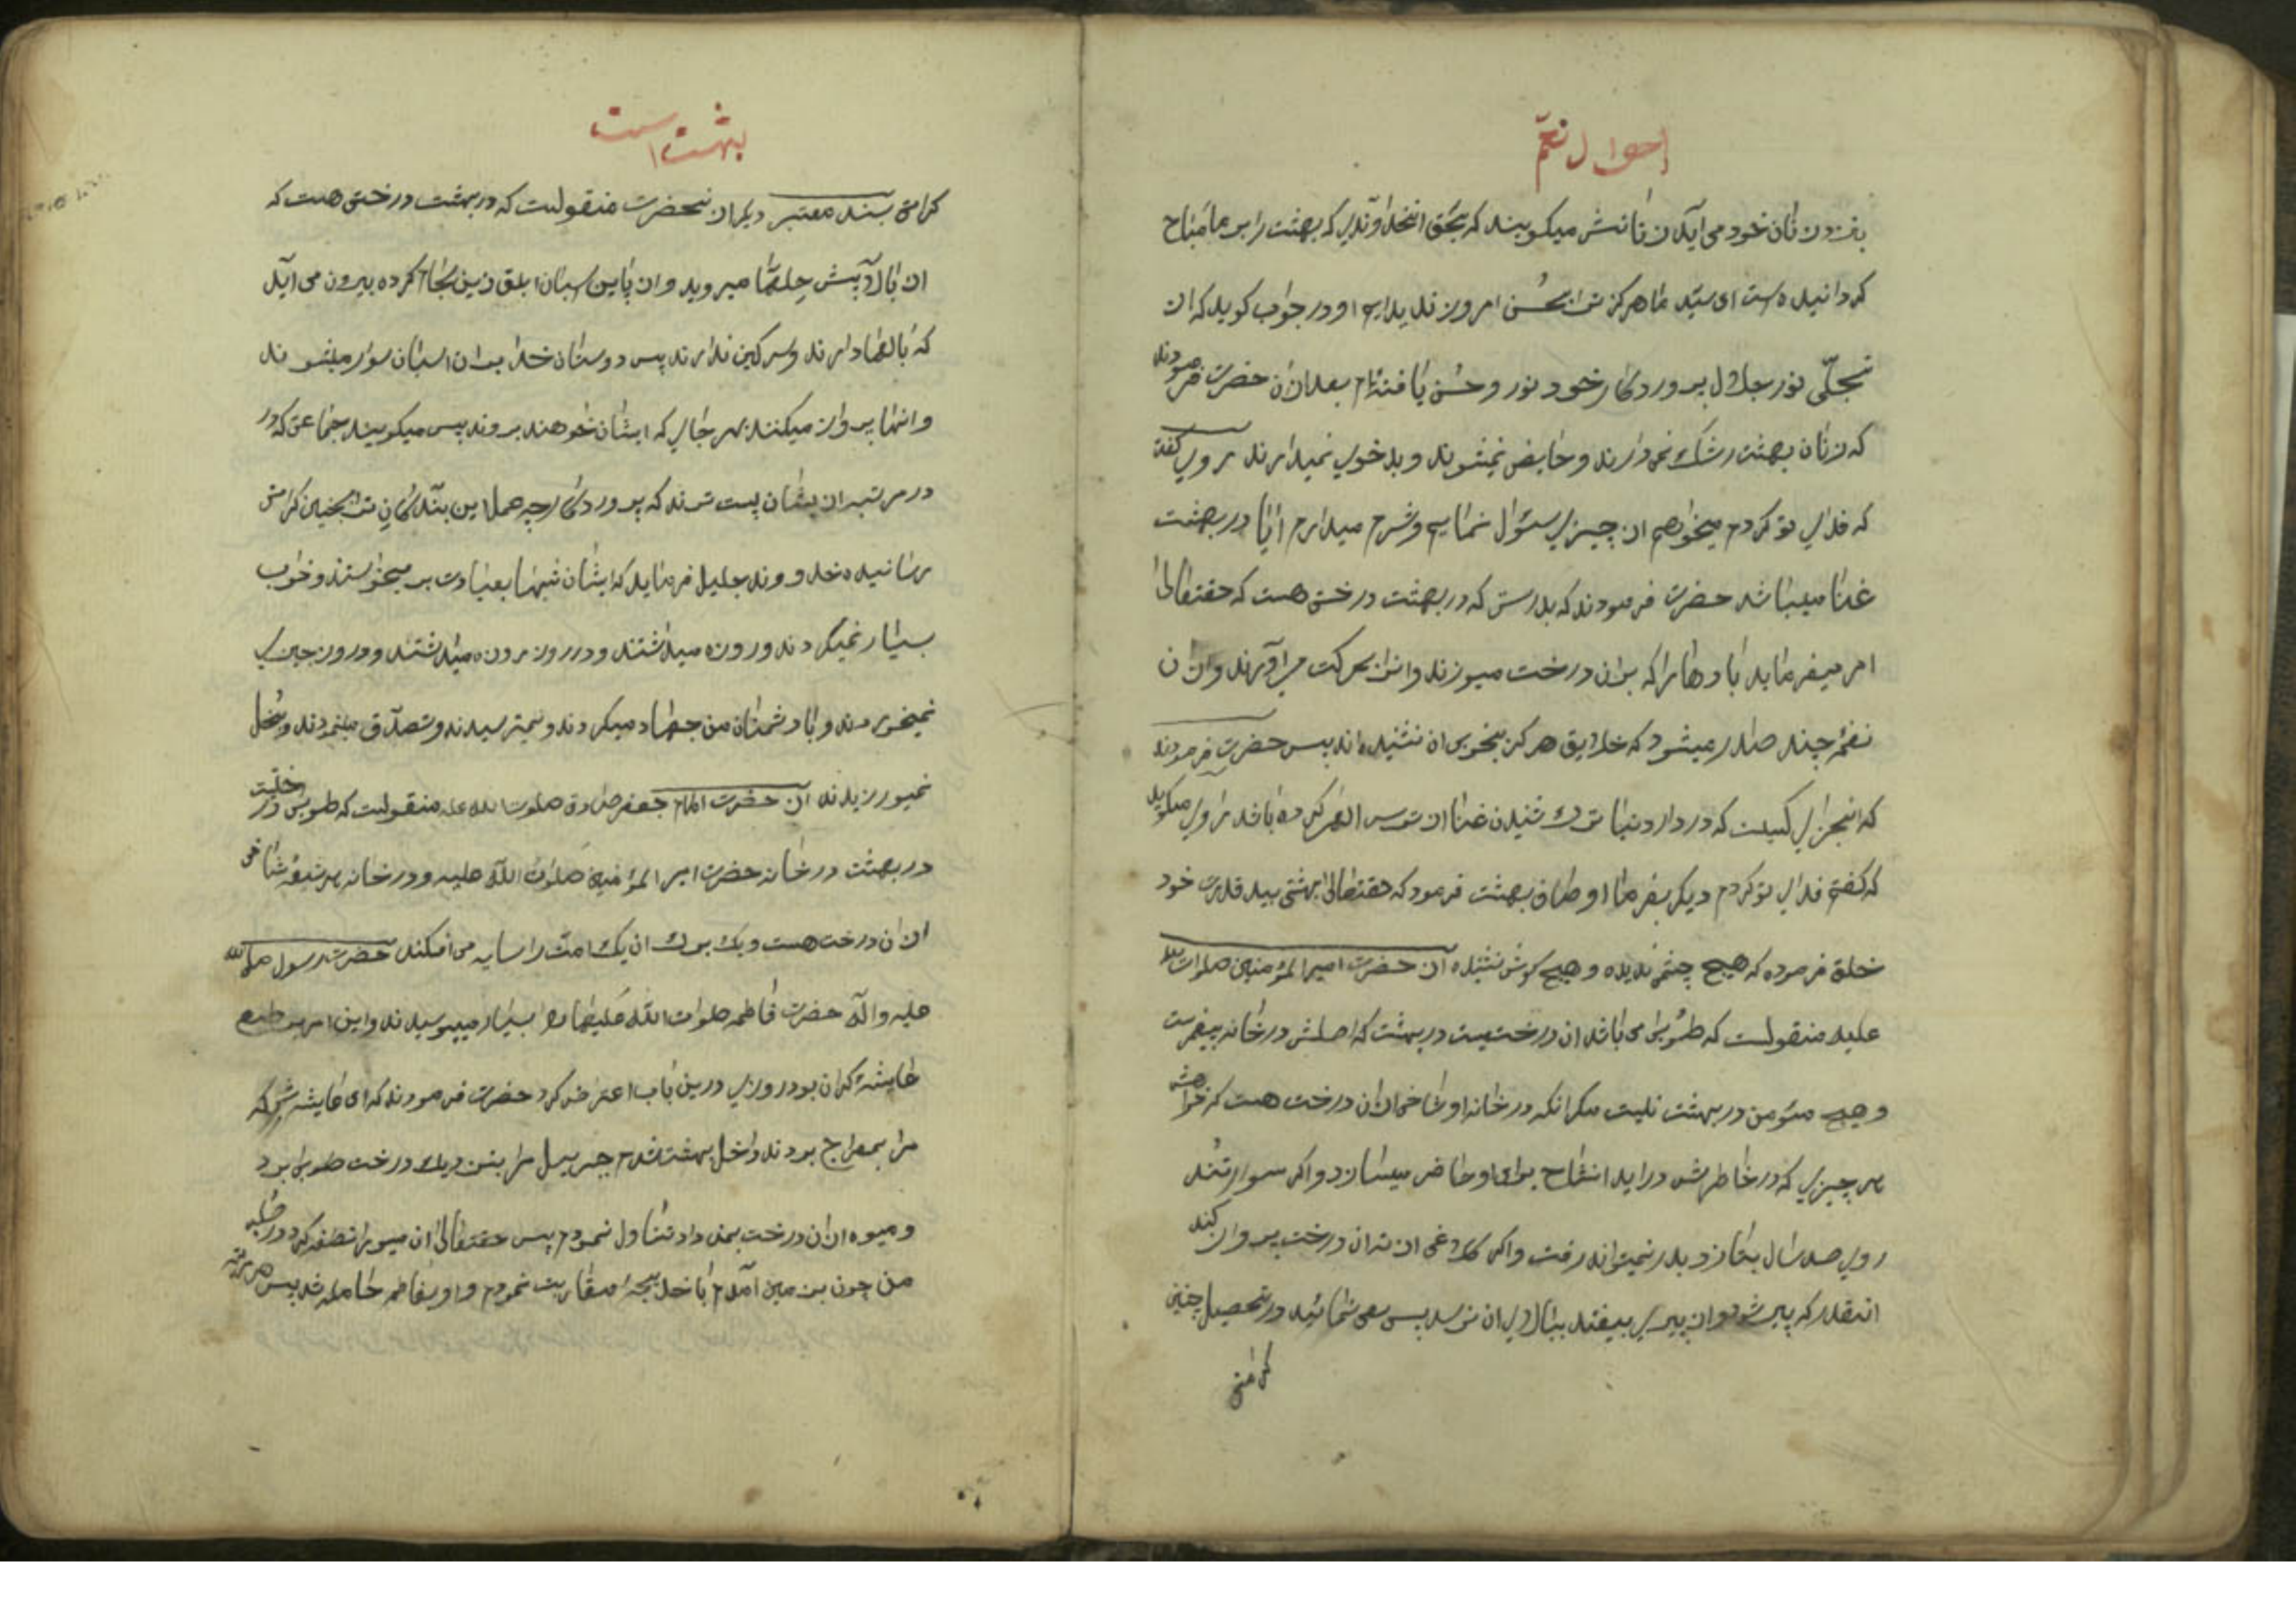 احوال نعم
بنزد زنان خود می آید زنانش میکویند که بحق انخداوندی که بهشت را بر ما مباح
کردانیده است ای سید ما هرکز ترا بحسن امروز ندیده ایم او در جواب کوید که از
تجلی نور جلال پروردکار خود نور و حسن یافته ام بعد ازان حضرت فرمودند
که زنان بهشت رشک نمیدارند و حایض نمیشوند و بدخویی نمیدارند روای کفت
که فدای تو کردم میخواهم از چیزی سئوال نمایم و شرم میدارم ایا در بهشت
غنا میباشد حضرت فرمودند که بدرستی که در بهشت درختی هست که حقتعالی
امر میفرماید بادها را که بران درخت میوزند وانرا بحرکت می اورند و ازان
نغمه چند صادر میشود که خلایق هرکز بخوبی ان نشنیده اند پس حضرت فرمودند
که اینجزای کسیست که در دار دنیا ترک شنیدن غنا از ترس الهی کرده باشد راوی میکوید
که کفتم فدای تو کردم دیکر بفرما اوصاف بهشت فرمود که حقتعالی بهشتی بید قدرت خود
خلق فرموده که هیچ چشم ندیده و هیچ کوش نشنیده از حضرت امیرالمؤمنین صلوات الله
علیه منقولست که طوبی می باشد ان درختیست در بهشت که اصلش در خانه پیغمبرست
و هیچ مؤمن در بهشت نیست مکر انکه در خانه او شاخی ازان درخت هست که خواهش
هر چیزی که در خاطرش در اید انشاخ برای او حاضر میسازد و اکر سوار تند
روی صد سال بتازد بدر نمیتواند رفت و اکر کلاغی از ته ان درخت پرواز کند
انقدر که پیر شود و از پیری بیفتد ببالای ان نرسد پس سعی نمائید در تحصیل چنین
کرامتی
بهشت است
کرامتی بسند معتبر دیکر از انحضرت منقولست که در بهشت درختی هست که
از بالا پیش حله ها میروید و از پایین اسبان ابلق زین و لجام کرده بیرون می اید
که بالها دارند و سرکین ندارند پس دوستان خدا بران اسبان سوار میشوند
و انها پرواز میکنند بهر جای که ایشان خواهند بروند پس میکویند جماعتی که در
در مرتبه از ایشان پست ترند که پروردکارا چه عمل این بندکان ترا بچنین کرامتی
رسانیده خداوند جلیل فرماید که ایشان شبها بعبادت بر میخواستند و خواب
بسیار نمیکردند و روزه میداشتند و در روز روزه میداشتند و در روز چیزی
نمیخوردند و با دشمنان من جهاد میکردند و نمیترسیدند و تصدق مینمودند و بخل
نمیورزیدند از حضرت امام جعفر صادق صلوت الله علیه منقولست که طوبی درختیست
در بهشت در خانه حضرت امیرالمؤمنین صلوات الله علیه و در خانه هر شیعه شاخی
ازان درخت هست و یک برک ان یک امت را سایه می افکند حضرت رسول صلی الله
علیه واله حضرت فاطمه صلوات الله علیها را بسیار میبوسیدند و این امر بر طبع
عایشه کران بود روزی درین باب اعتراض کرد حضرت فرمودند که ای عایشه شبی که
مرا بمعراج بودند داخل بهشت شدم جبرییل مرا بنزدیک درخت طوبی برد
و میوه ازان درخت بمن داد تناول نمودم پس حقتعالی ان میوه را نطفه کرد در صلب
من چون بزمین آمدم با خدیجه مقاربت نمودم و او بفاطمه حامله شد پس هر مرتبه